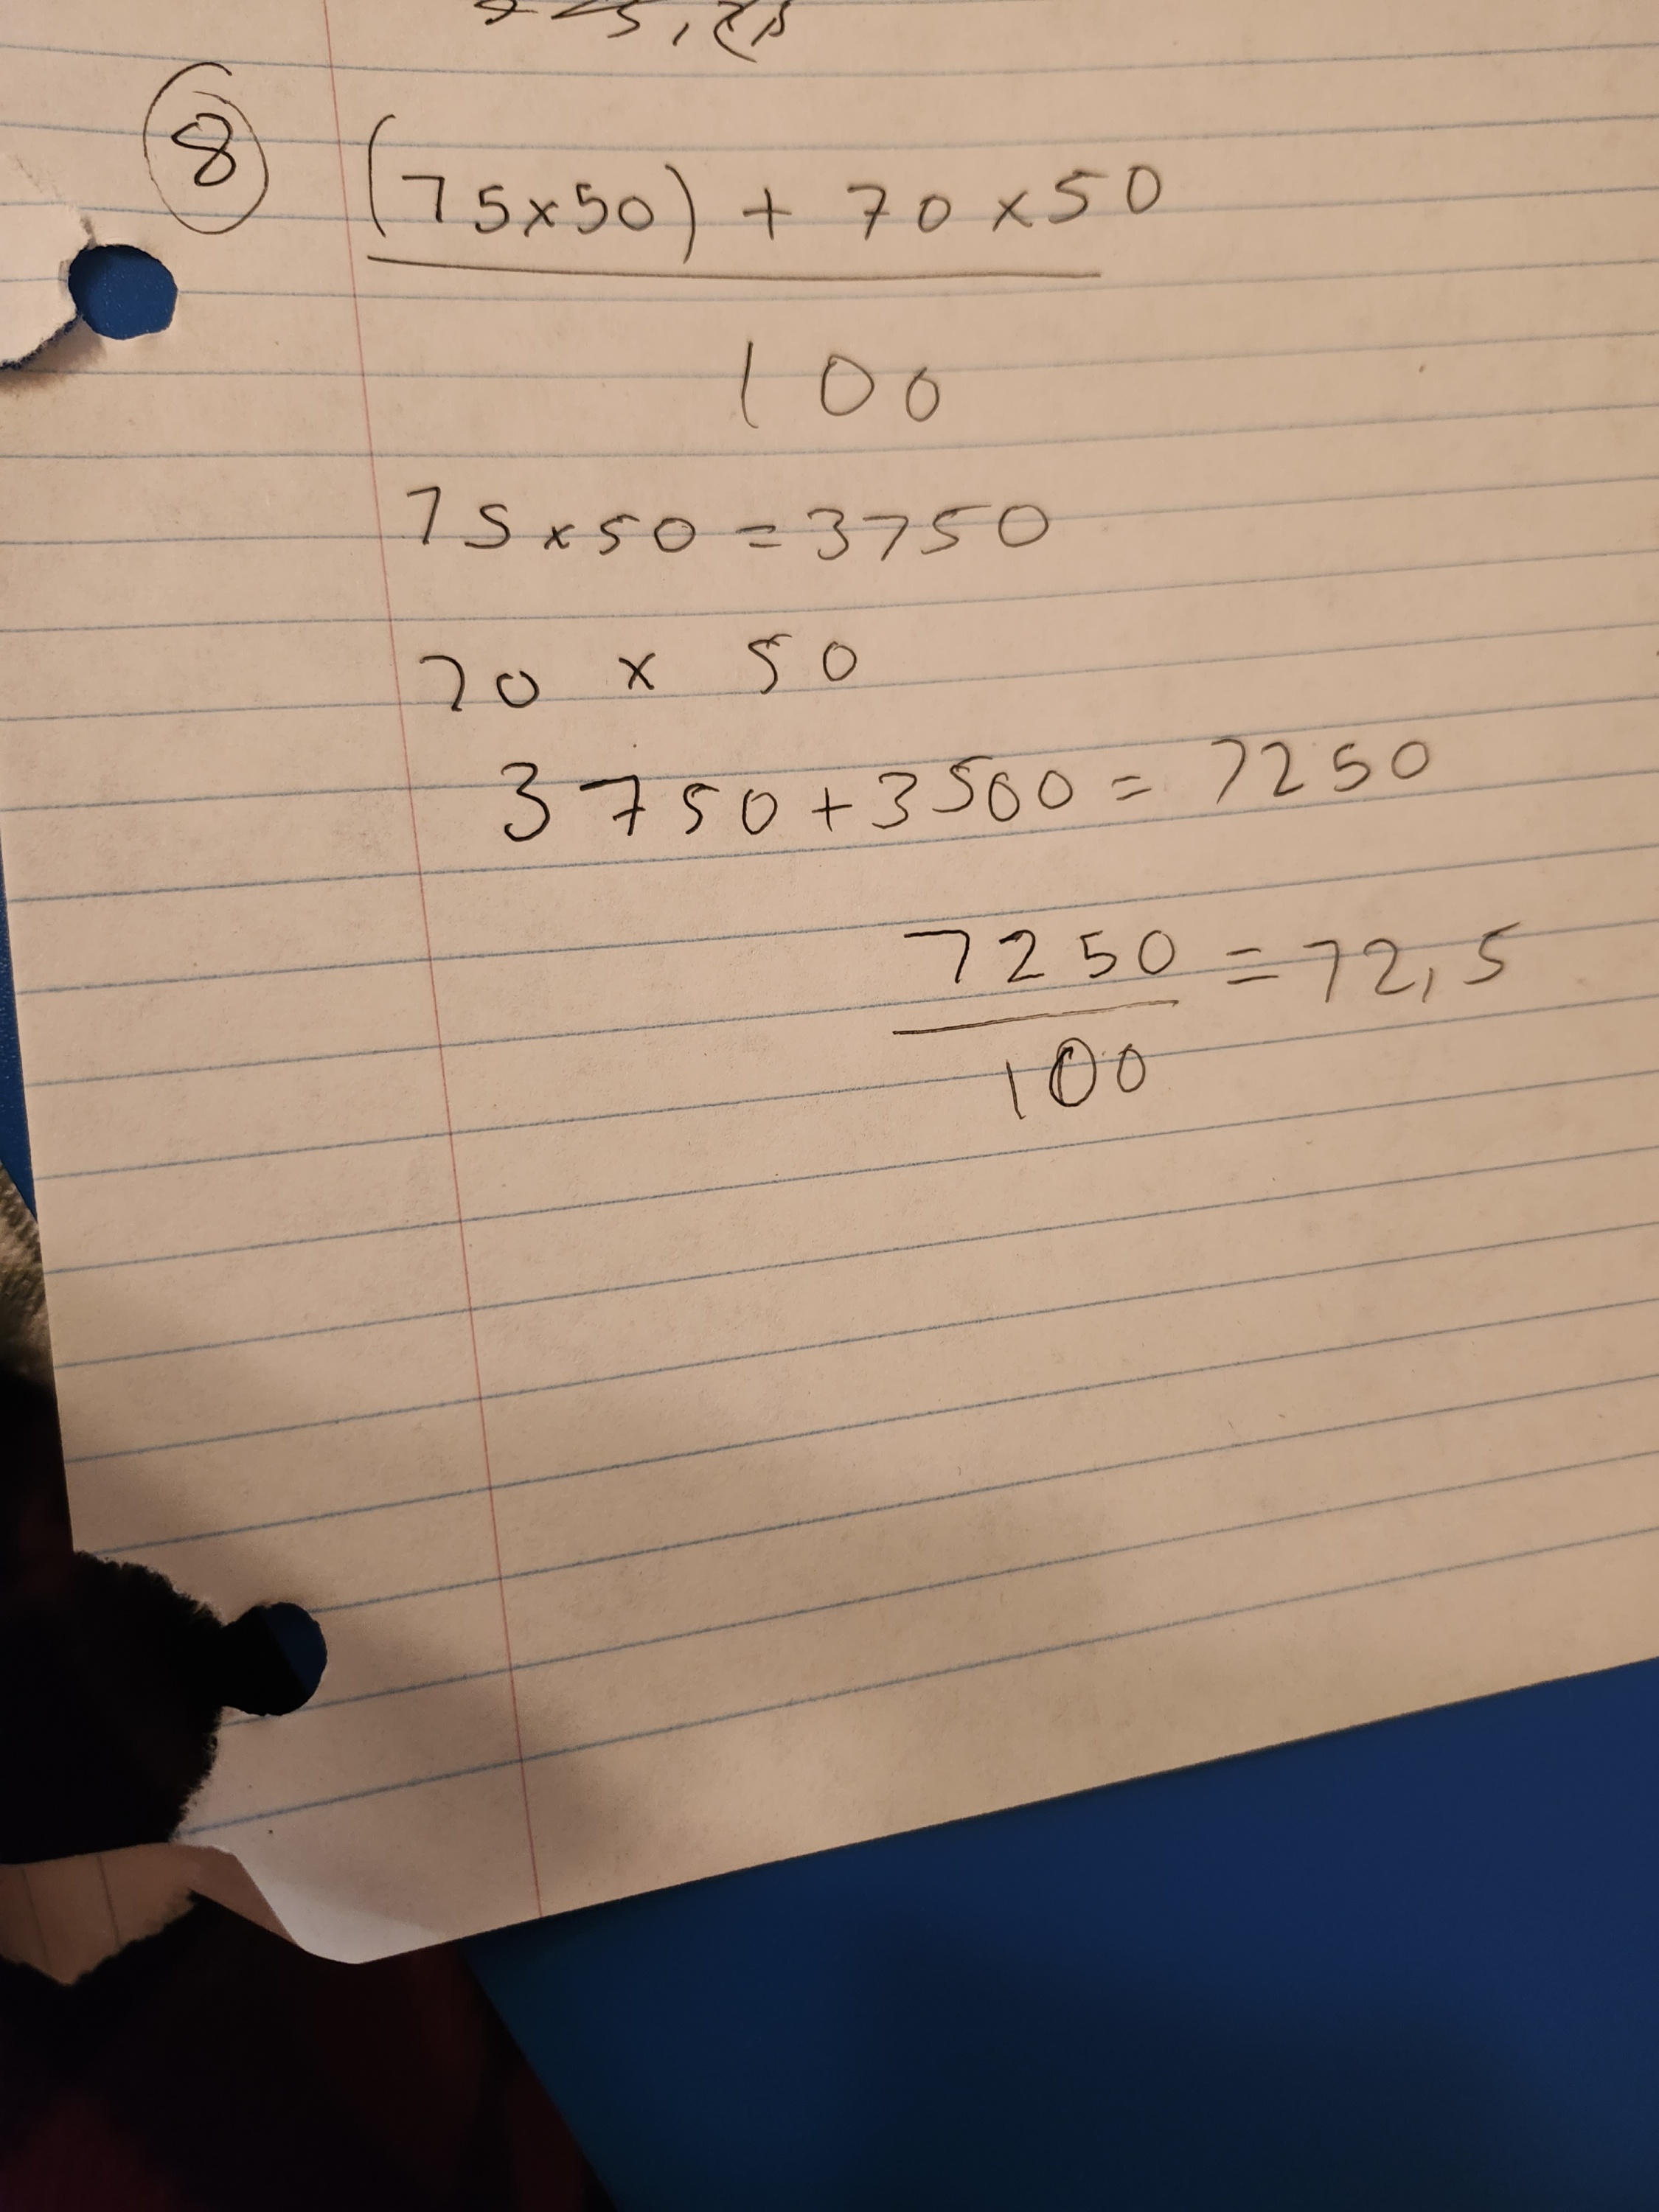 8 (75x50) + 70 x 50
100
75 x 50 = 3750
70 x 50
3750 + 3500 = 7250
7250 = 72,5
100